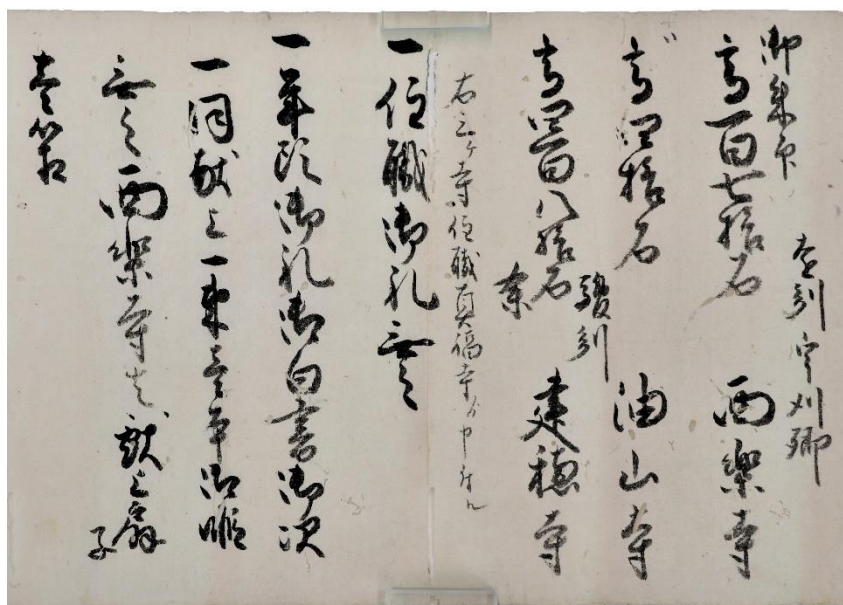 御朱印　遠州宇刈郷
高百七拾石　西樂寺
〃
高四拾石　油山寺
駿州
高四百八拾石余　建穂寺
右三ヶ寺住職真福寺ゟ申付ル
一住職御礼無之
一年頭御礼御白書御次
一同献上一束壱本御暇
無之西樂寺者献上扇子
壱箱